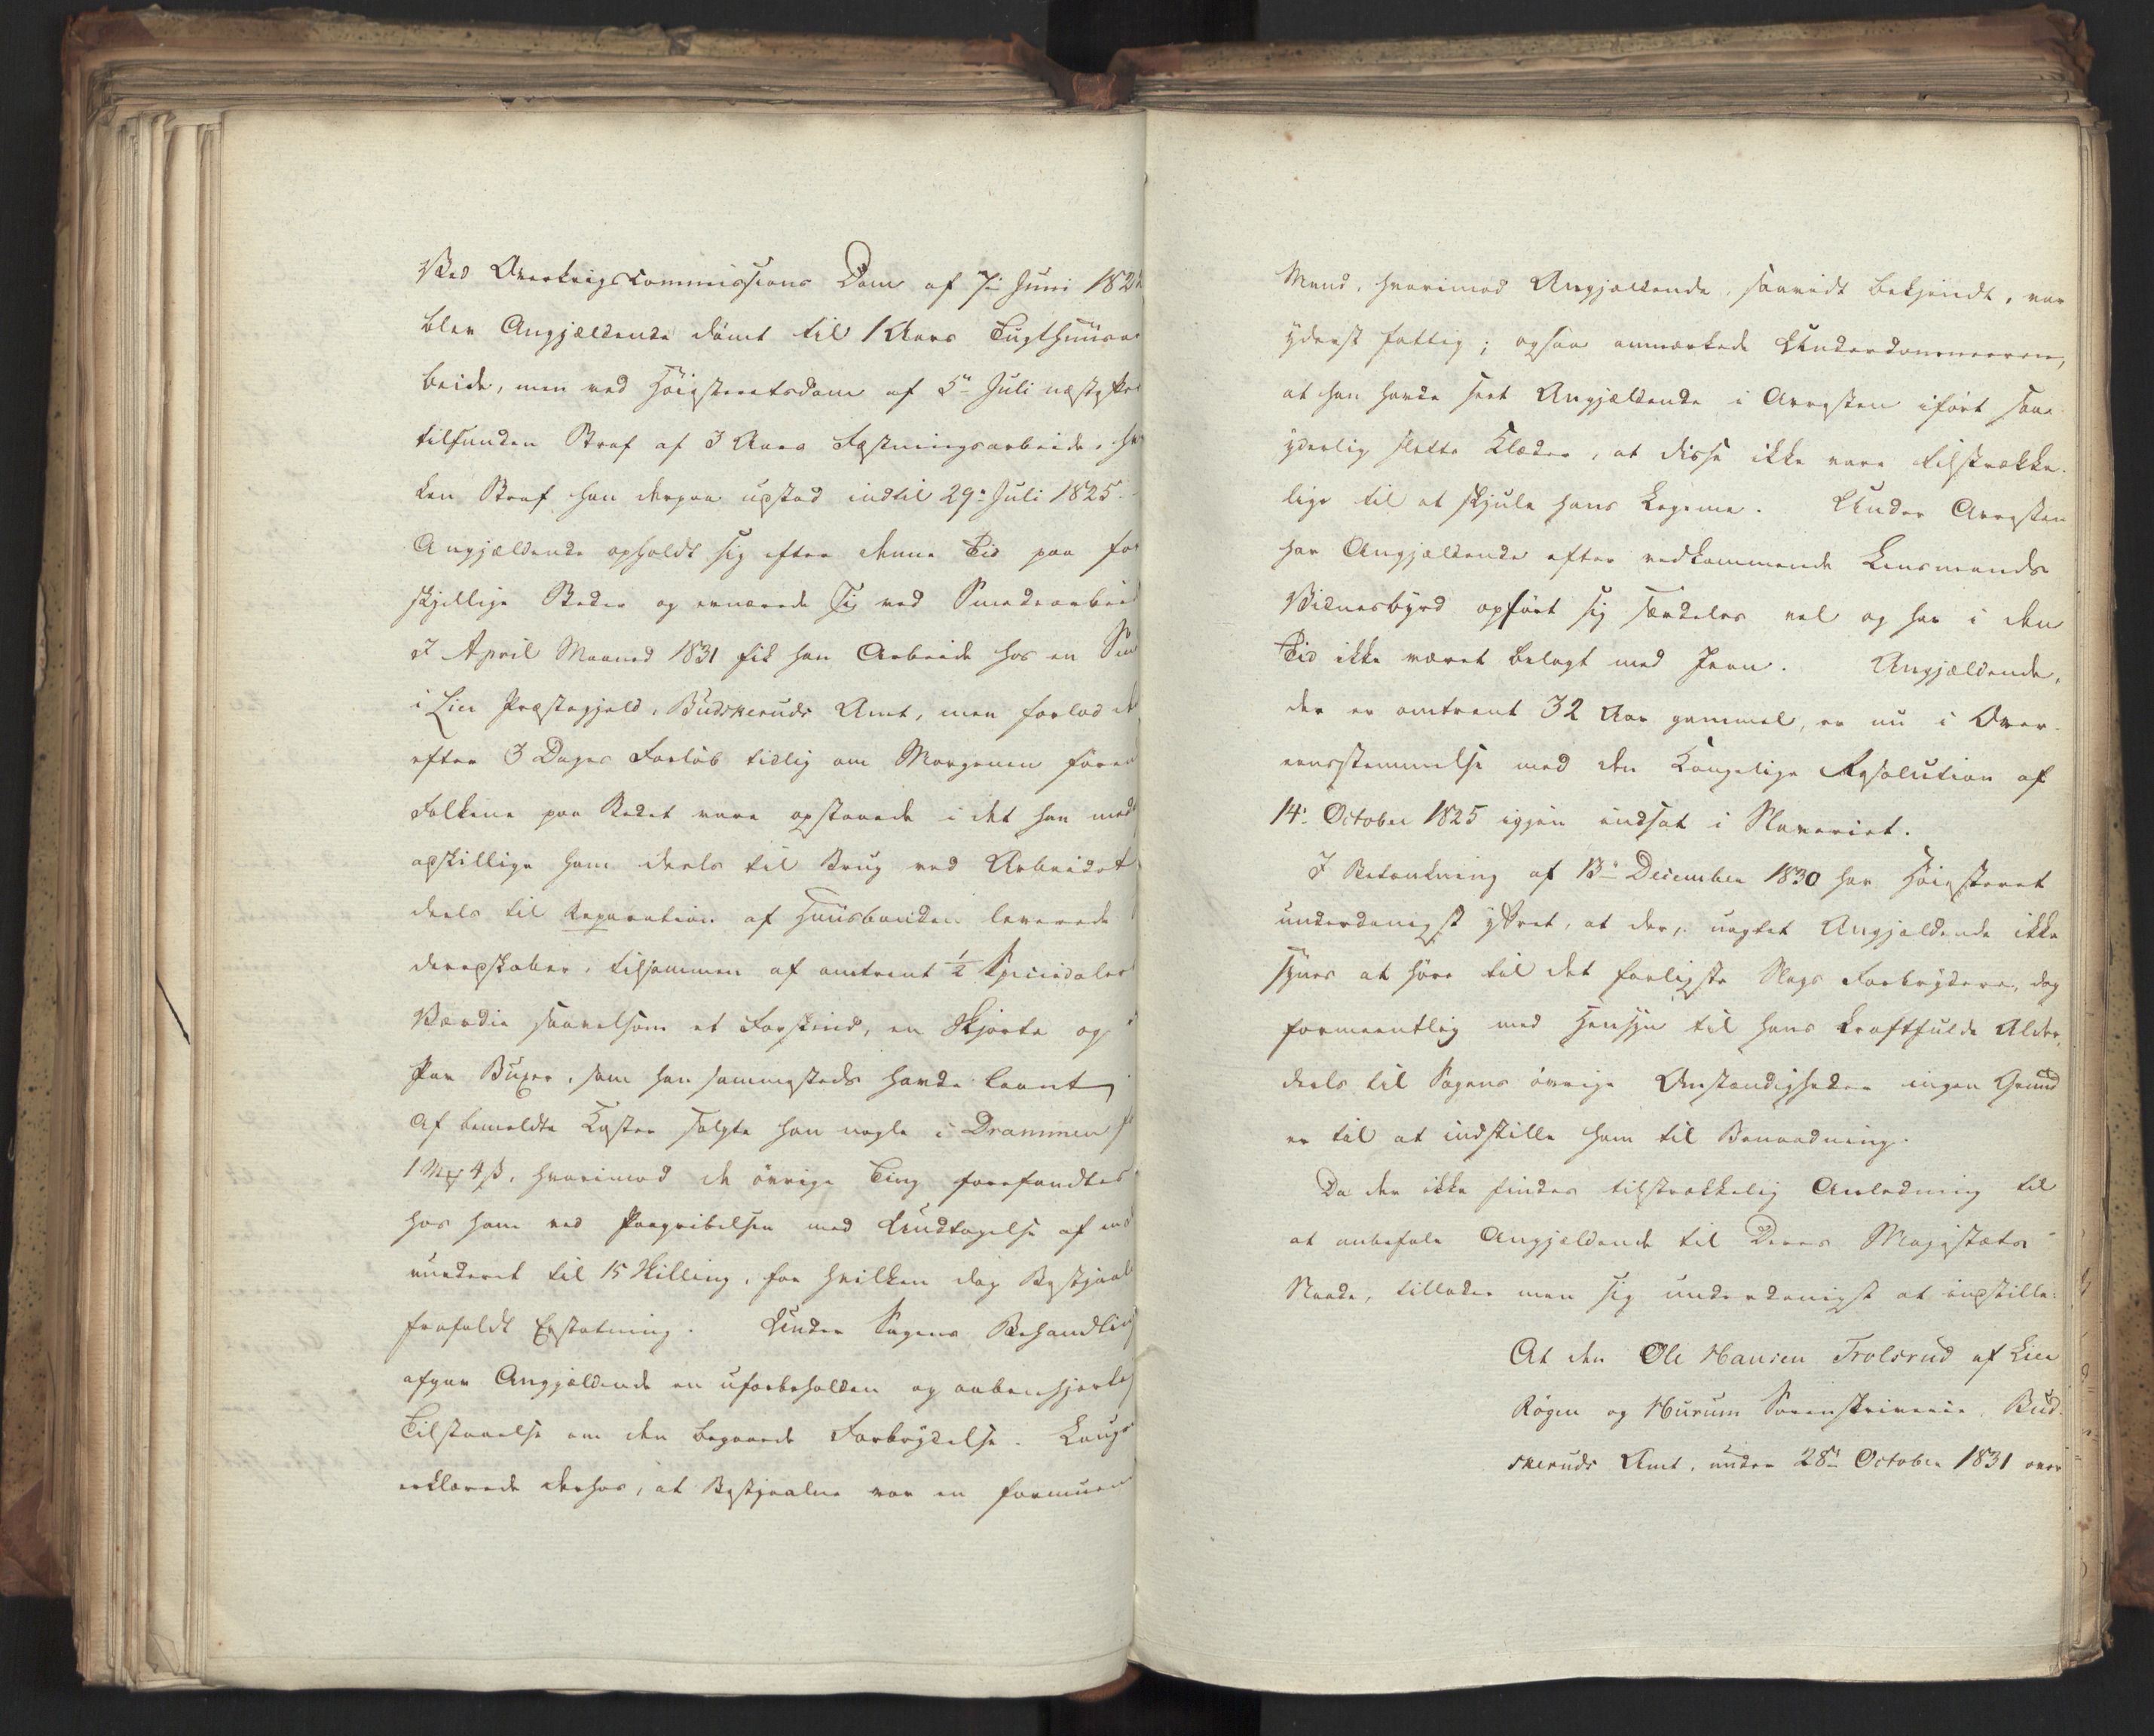 Ved Overkrigscommissions Dom af 7de Juni 182
blev Angjældende dömt til 1 Aars Tugthuusar
beide, men ved Höiesteretsdom af 5te Juli næstefter
tilfunden Straf af 3 Aars Fæstningsarbeide, hvil
ken Straf han derpaa udstod indtil 29de Juli 1825.
Angjældende opholdt sig efter denne Tid paa for
skjellige Steder og ernærede sig ved Smedearbeid
I April Maaned 1831 fik han Arbeide hos en Smed
i Lier Præstegjeld, Budskeruds Amt, men forlod det
efter 3 Dages Forløb tidlig om Morgenen förend
Folkene paa Stedet vare opstaaede i det han medt
adskillige ham deels til Brug ved Arbeidet
deels til Reparation af Huusbonden leverede
Redskaber, tilsammen af omtrent ½ Speciedalers
Værdie saavelsom et Forskind, en Skjorte og
Par Buxer, som han sammesteds havde laant,
Af bemeldte Koster solgte han nogle i Drammen for
1 Mrk 4 ß, hvorimod de övrige Ting forefandtes
hos ham ved Paagribelsen med Undtagelse af end
vurderet til 15 Skilling, for hvilken dog Bestjaal
frafaldt Erstatning. Under Sagens Behandling
afgav Angjældende en uforbeholden og aabenhjertig
Tilstaaelse om den begaaede Forbrydelse. Laug
erklærede derhos, at Bestjaalne var en formuen
Mand, hvorimod Angjældende, saavidt bekjendt, var
yderst fattig; ogsaa anmærkede Underdommeren,
at han havde seet Angjældende i Arresten iført saa
yderlig slette Klæder, at disse ikke vare tilstrække-
lige til at skjule hans Legeme. Under Arresten
har Angjældende efter vedkommende Lensmands
Vidnesbyrd opført sig særdeles vel og har i den
Tid ikke været belagt med Jern. Angjældende,
der er omtrent 32 Aar gammel, er nu i Over-
eensstemmelse med den Kongelige Resolution af
14de October 1825 igjen indsat i Slaveriet.
I Betænkning af 13de December 1830 har Höiesteret
underdanigst yttret, at der, uagtet Angjældende ikke
synes at høre til det farligste Slags Forbrydere, dog
formeentlig med Hensyn til hans kraftfulde Alder,
deels til Sagens övrige Omstændigheder ingen Grund
er til at indstille ham til Benaadning.
Da der ikke findes tilstrækkelig Anledning til
at anbefale Angjældende til Deres Majestæts
Naade, tillader man sig underdanigst at indstille:
At den Ole Hansen Trolsrud af Lier
Røgen og Hurum Sorenskriverie Bud-
skeruds Amt, under 28de October 1831 over